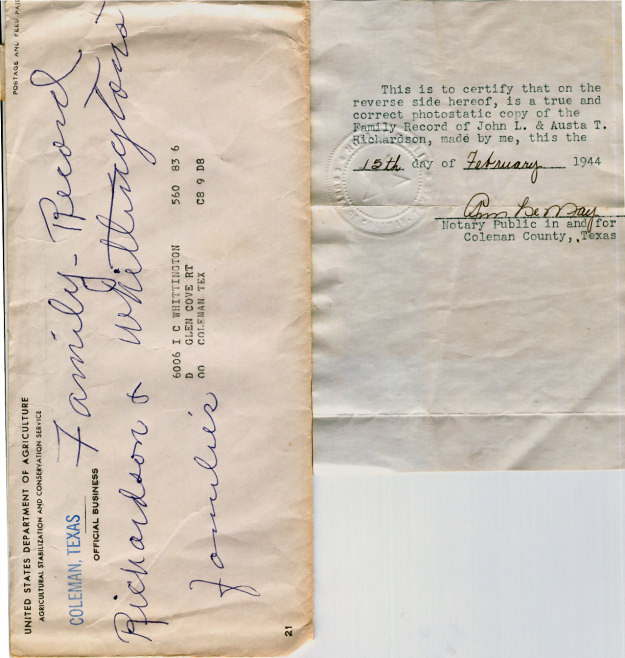 UNITED STATES DEPARTMENT OF AGRICULTURE
AGRICULTURAL STABILIZATION AND CONSERVATION SERVICE
COLEMAN, TEXAS
OFFICIAL BUSINESS
POSTAGE AND FEES PAID
Family - Record
Richardson & Whittingtons
families
6006 I C WHITTINGTON 560 83 6
D GLEN COVE RT
00 COLEMAN TEX C8 9 D8
21
This is to certify that on the
reverse side hereof, is a true and
correct photostatic copy of the
Family Record of John L. & Austa T.
Richardson, made by me, this the
15th day of February 1944
Notary Public in and for
Coleman County, Texas